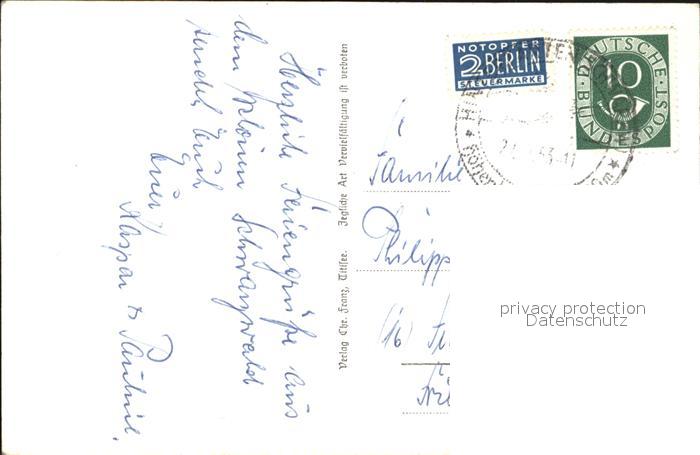 Herzliche Feriengrüße aus
dem schönen Schwarzwald
sendet Euch
Euer
Kaspar & Familie.
Verlag Chr. Franz, Titisee. Jegliche Art Vervielfältigung ist verboten
NOTOPFER
2 BERLIN
STEUERMARKE
DEUTSCHE BUNDESPOST
10
Familie
Philipp
(16)
privacy protection
Datenschutz